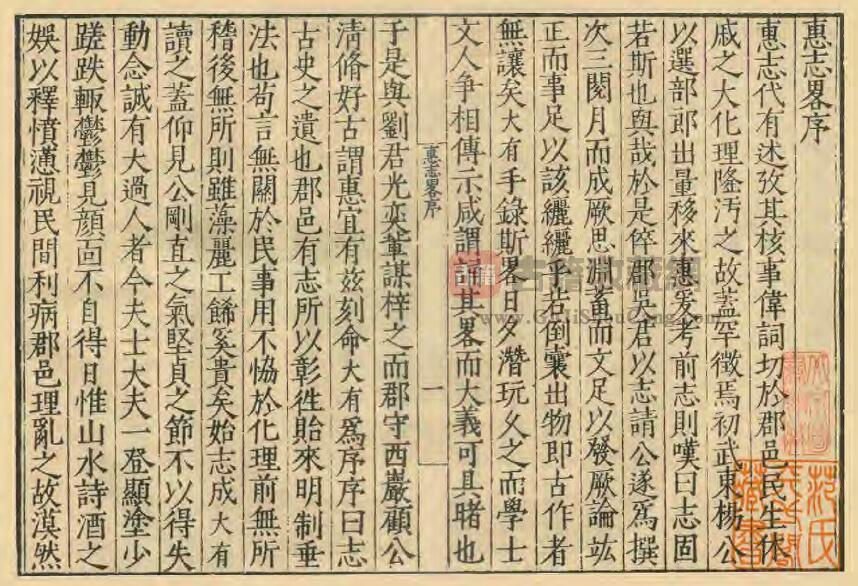 惠志畧序
惠志代有述攷其核事偉詞切於郡邑民生休
戚之大化理隆汚之故蓋罕徵焉初武東楊公
以選部郎出量移來惠爰考前志則嘆曰志固
若斯也與哉於是倅郡吳君以志請公遂爲撰
次三閱月而成厥思淵蓄而文足以發厥論竑
正而事足以該纚纚乎若倒囊出物即古作者
無讓矣大有手錄斯畧日夕潛玩久之而學士
文人爭相傳示咸謂誦其畧而大義可具睹也
惠志畧序
一
于是與劉君光奕軰謀梓之而郡守西巖顧公
淸脩好古謂惠宜有茲刻命大有爲序序曰志
古史之遺也郡邑有志所以彰徃貽來明制垂
法也茍言無關於民事用不恊於化理前無所
稽後無所則雖藻麗工餙奚貴矣始志成大有
讀之蓋仰見公剛直之氣堅貞之節不以得失
動念誠有大過人者今夫士大夫一登顯塗少
蹉跌輙鬱鬱見顏面不自得日惟山水詩酒之
娛以釋憤懣視民間利病郡邑理亂之故漠然
古籍收藏網
www.GuJiShuCang.com
范氏
藏書